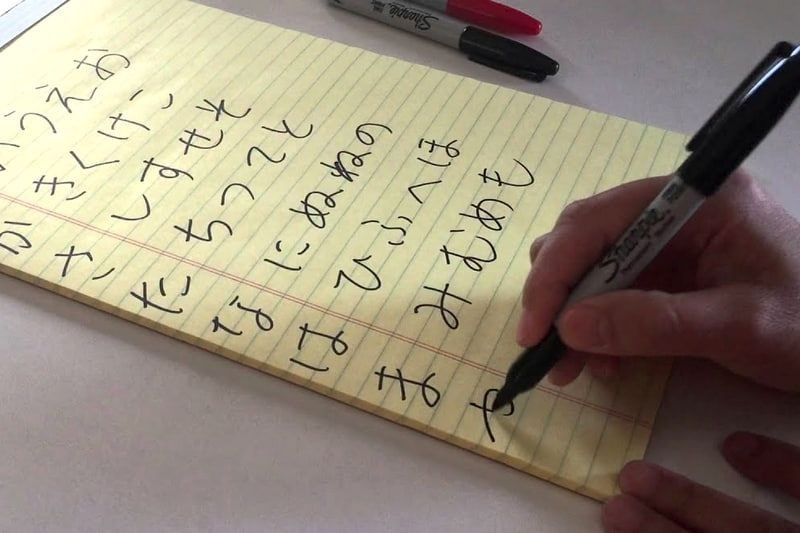 Sharpie
いうえお
かきくけこ
さしすせそ
たちつてと
なにぬねの
はひふへほ
まみむめも
や
Sharpie